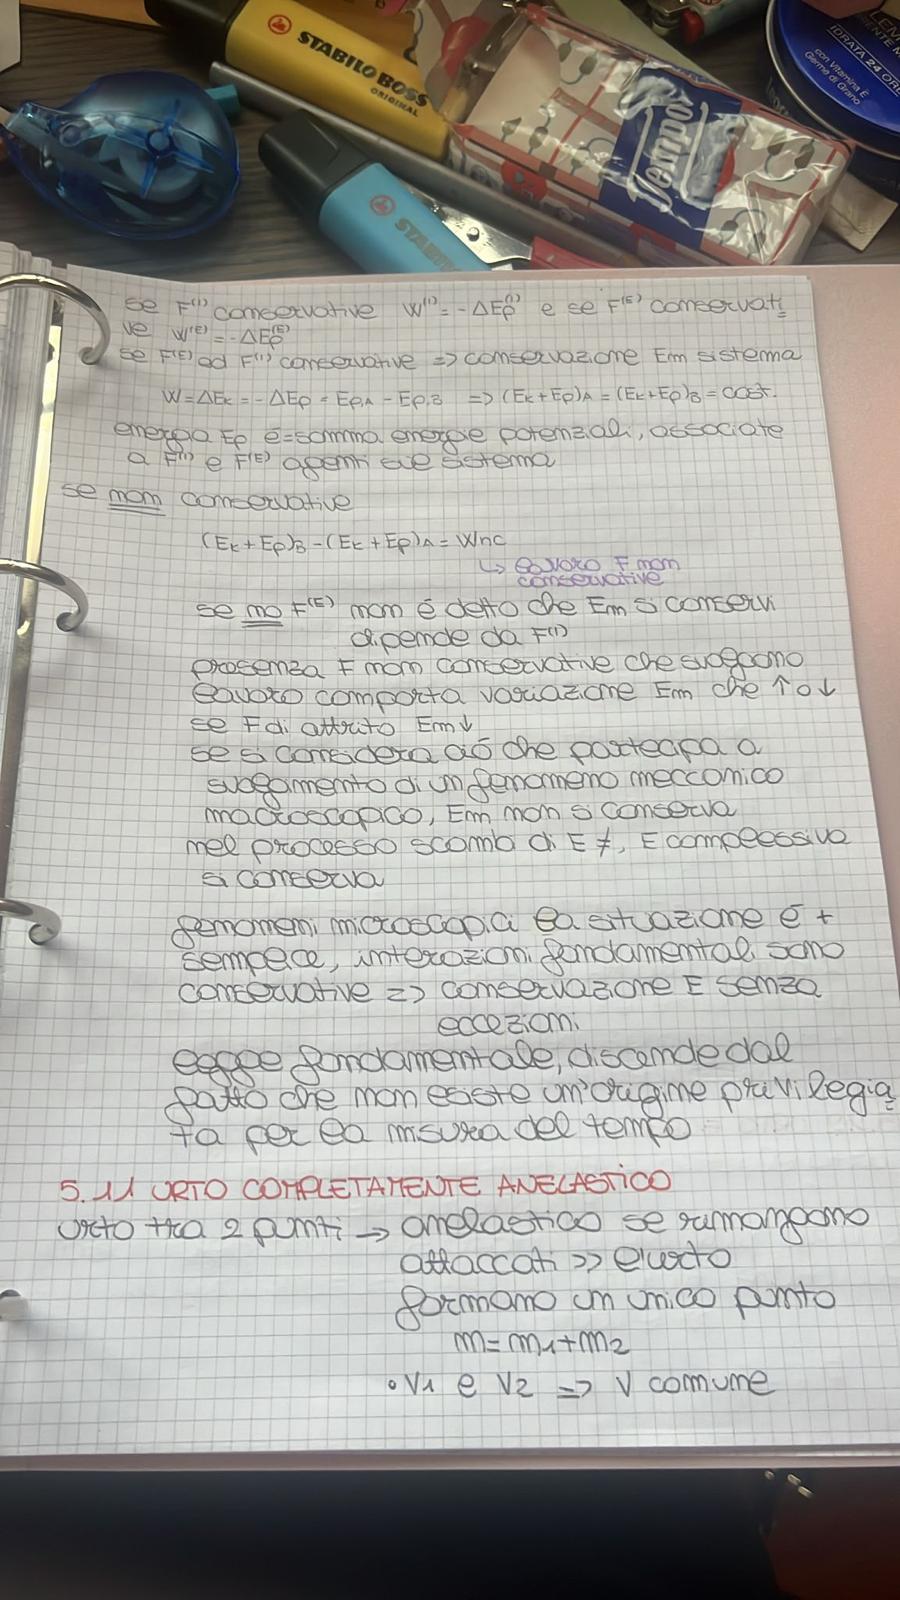 STABILO BOSS
ORIGINAL
STABILO
Tempo
IDRATA 24 ORE
con Vitamina E
Germe di Grano
se F⁽ᴵ⁾ conservative W⁽ᴵ⁾ = -ΔEp⁽ᴵ⁾ e se F⁽ᴱ⁾ conservati
ve W⁽ᴱ⁾ = -ΔEp⁽ᴱ⁾
se F⁽ᴱ⁾ ed F⁽ᴵ⁾ conservative => conservazione Em sistema
W = ΔEk = -ΔEp = Ep,A - Ep,B => (Ek + Ep)A = (Ek+Ep)B = cost.
energia Ep è = somma energie potenziali, associate
a F⁽ᴵ⁾ e F⁽ᴱ⁾ agenti sul sistema
se non conservative
(Ek + Ep)B - (Ek + Ep)A = Wnc
↳ lavoro F non
conservative
se no F⁽ᴱ⁾ non è detto che Em si conservi
dipende da F⁽ᴵ⁾
presenza F non conservative che svolgono
lavoro comporta variazione Em che ↑ o ↓
se F di attrito Em↓
se si considera ciò che partecipa a
svolgimento di un fenomeno meccanico
macroscopico, Em non si conserva
nel processo scambi di E ≠, E complessiva
si conserva
fenomeni microscopici la situazione è +
semplice, interazioni fondamentali sono
conservative => conservazione E senza
eccezioni
legge fondamentale, discende dal
fatto che non esiste un'origine privilegia
ta per la misura del tempo
5.11 URTO COMPLETAMENTE ANELASTICO
urto tra 2 punti → anelastico se rimangono
attaccati >> l'urto
formano un unico punto
m = m₁ + m₂
• v₁ e v₂ => v comune